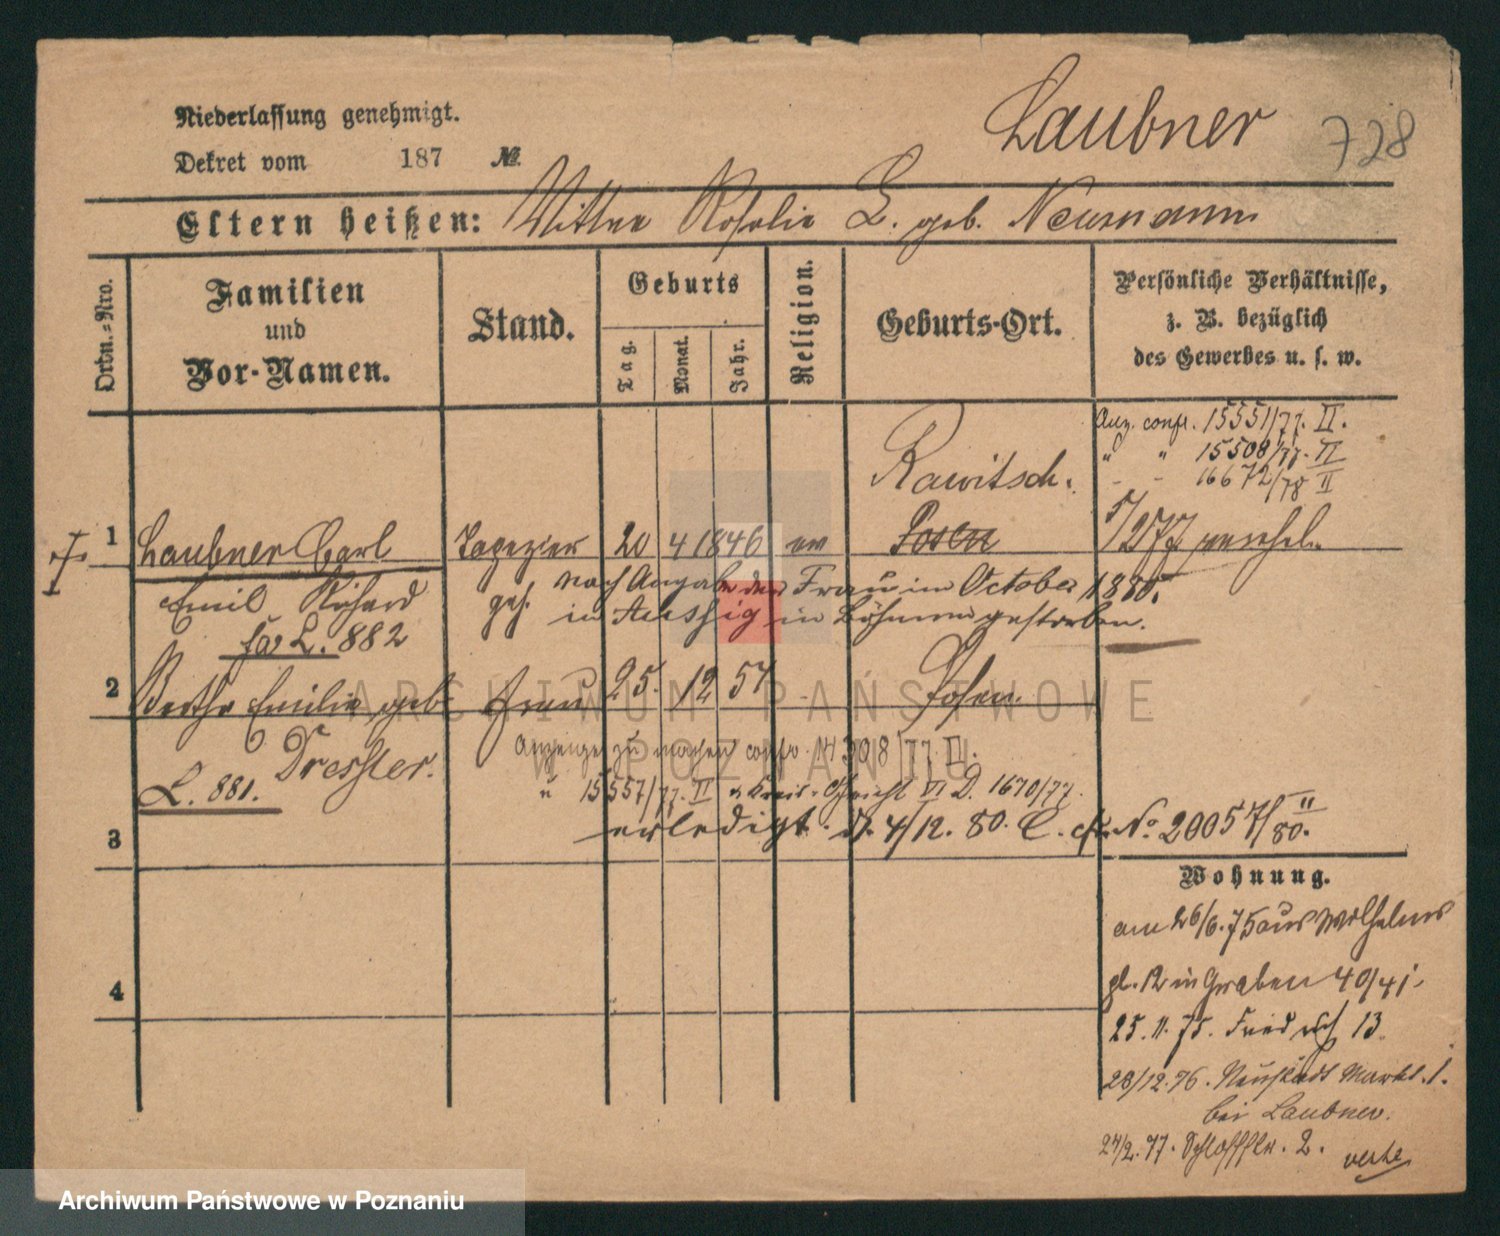 Laubner 728
Niederlassung genehmigt.
Dekret vom 187 №
Eltern heißen: Mutter Rosalie L. geb. Neumann
Ordn.-Nro.
Familien
und
Vor-Namen.
Stand.
Geburts
Tag.
Monat.
Jahr.
Religion.
Geburts-Ort.
Persönliche Verhältnisse,
z. B. bezüglich
des Gewerbes u. s. w.
Anz. confr. 15551/77. II.
" " 15508/77. II
- - 16672/78 II
Rawitsch.
1 Laubner Carl Tapezier 20 4 1846 ev Posen 5/2 77 verehel.
Emil Richard
gesch. nach Angabe der Frau im October 1880.
in Aussig in Böhmen gestorben.
fa L. 882
2 Bertha Emilie geb. Frau 25. 12 57 Posen.
Dressler.
L. 881.
Anzeige zu machen confr. 14308/77. II.
" 15557/77. II VI D. 1670/77.
3 erledigt. d. 4/12. 80. C. cfr. No 20057/80. II
Wohnung.
am 26/6. 75 aus Wilhelms
pl. 12 in Graben 40/41.
4
25. 11. 75. Friedrich 13
28/12. 76. Neustädt Markt. 1.
bei Laubner.
24/2. 77. Schlossstr. 2. verte
ARCHIWUM PAŃSTWOWE
W POZNANIU
Archiwum Państwowe w Poznaniu